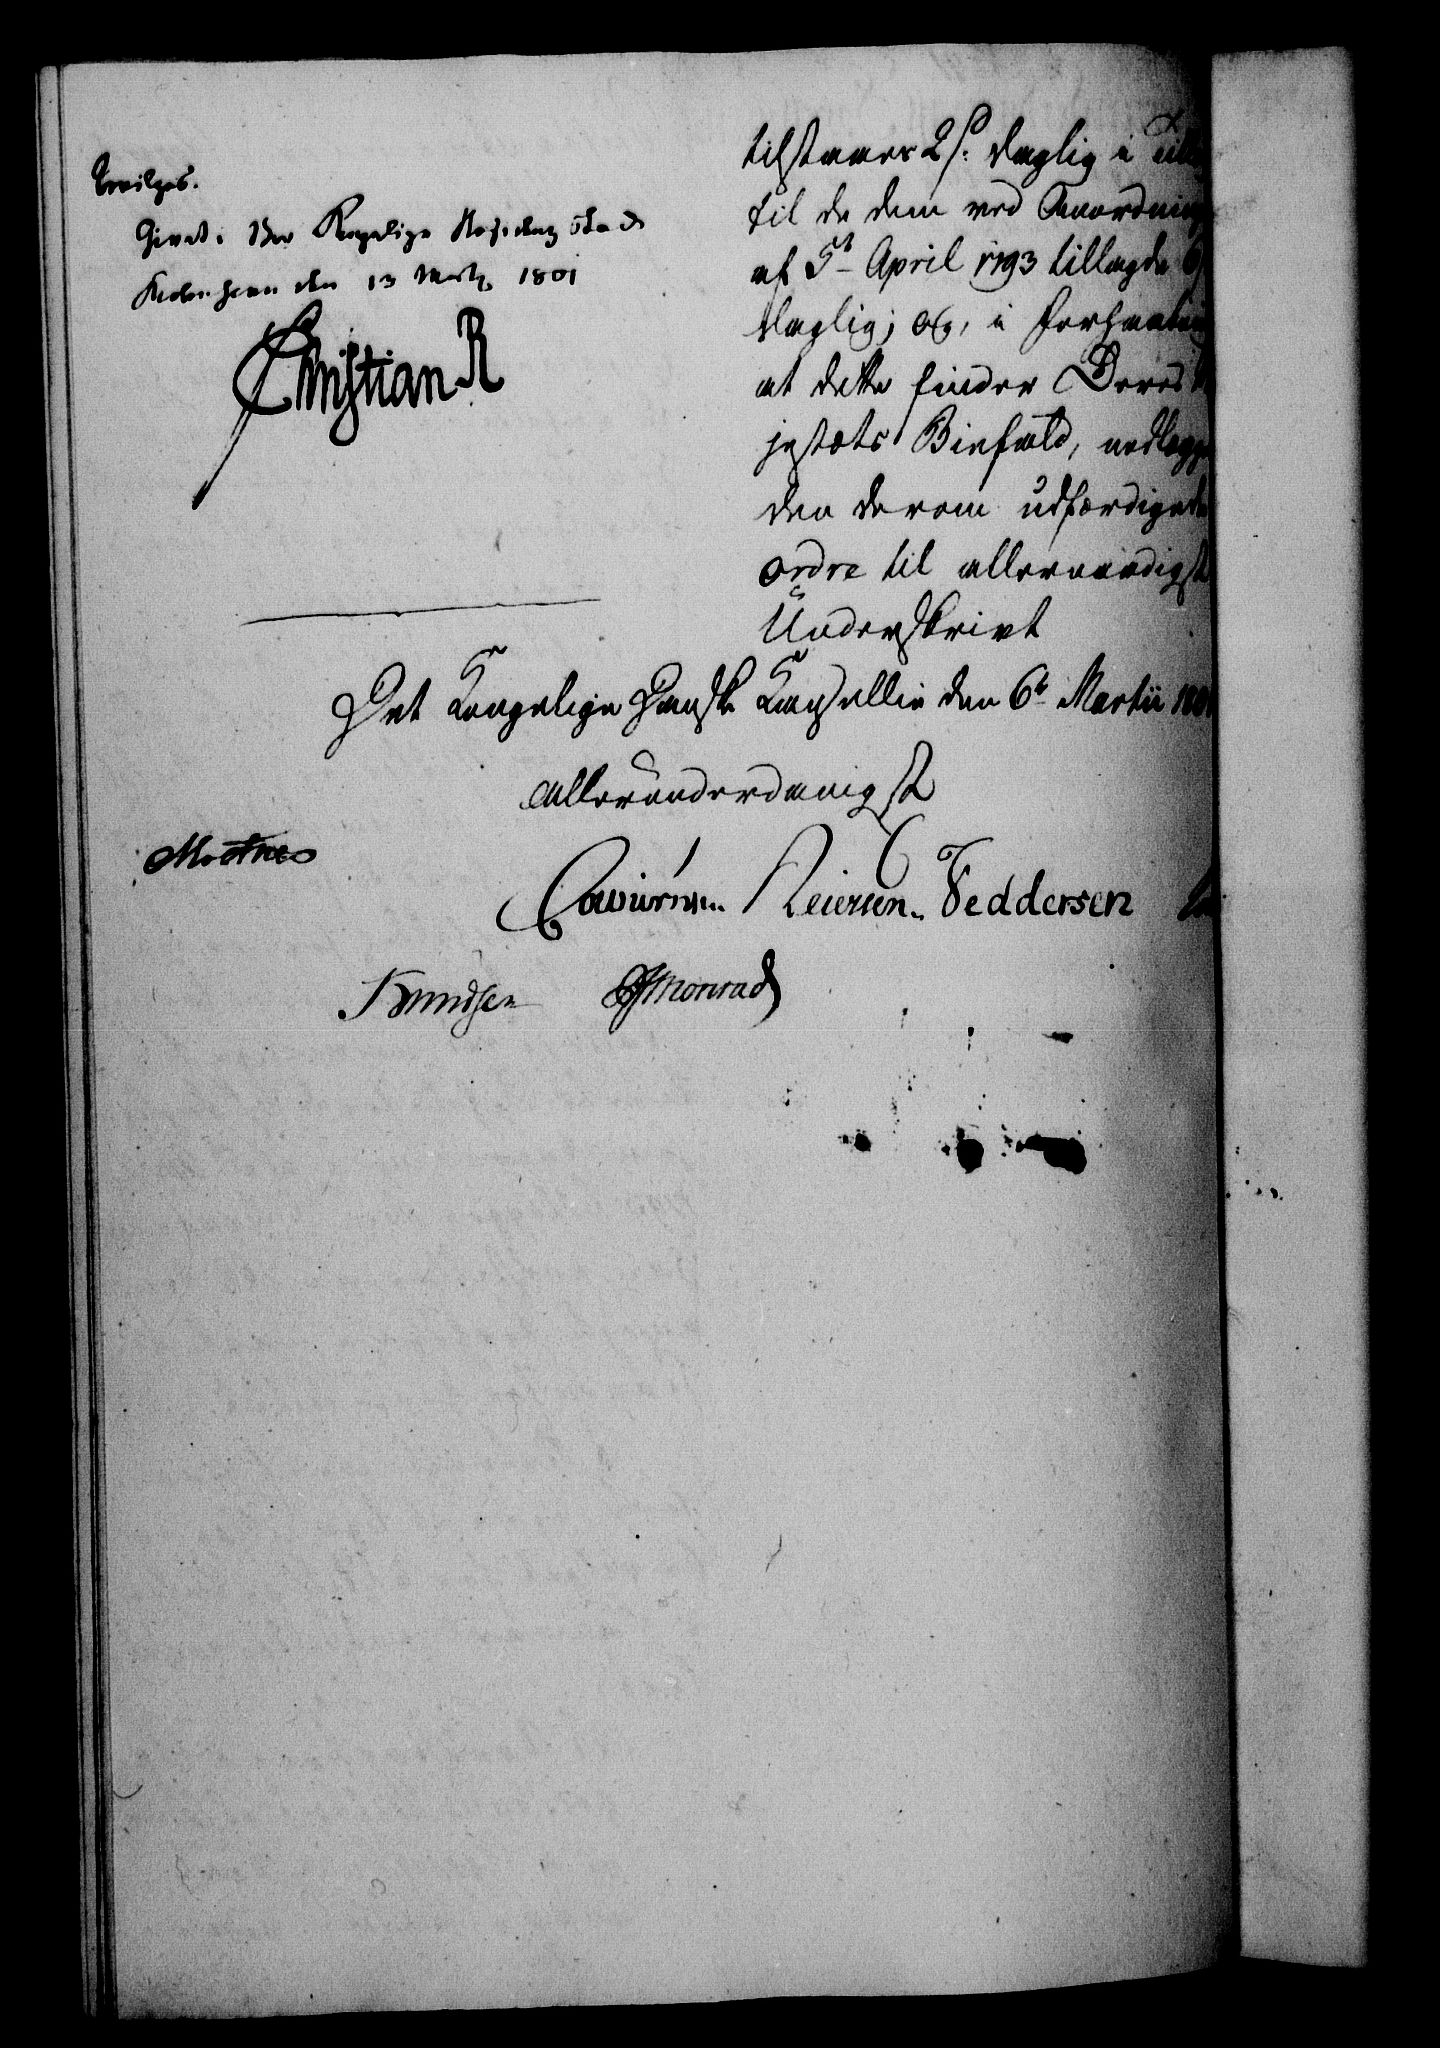 Bevilges.
Givet i Vor Kongelige Residenz Stad
Kiøbenhavn den 13 Martz 1801
Christian R
tilstaaes 2 s: daglig i
til de dem ved Anordning
af 5t April 1793 tillagde 6
daglig; og, i Forhaabning
at dette finder Deres
jestæts Biefald, nedlægge
den derom udfærdigede
ordre til allernaadigst
Underskrivt
Det Kongelige Danske Kancellie den 6t Martii 180
allerunderdanigst
Moltke
Cowürn. Reiersen. Feddersen
Knudsen Monrad